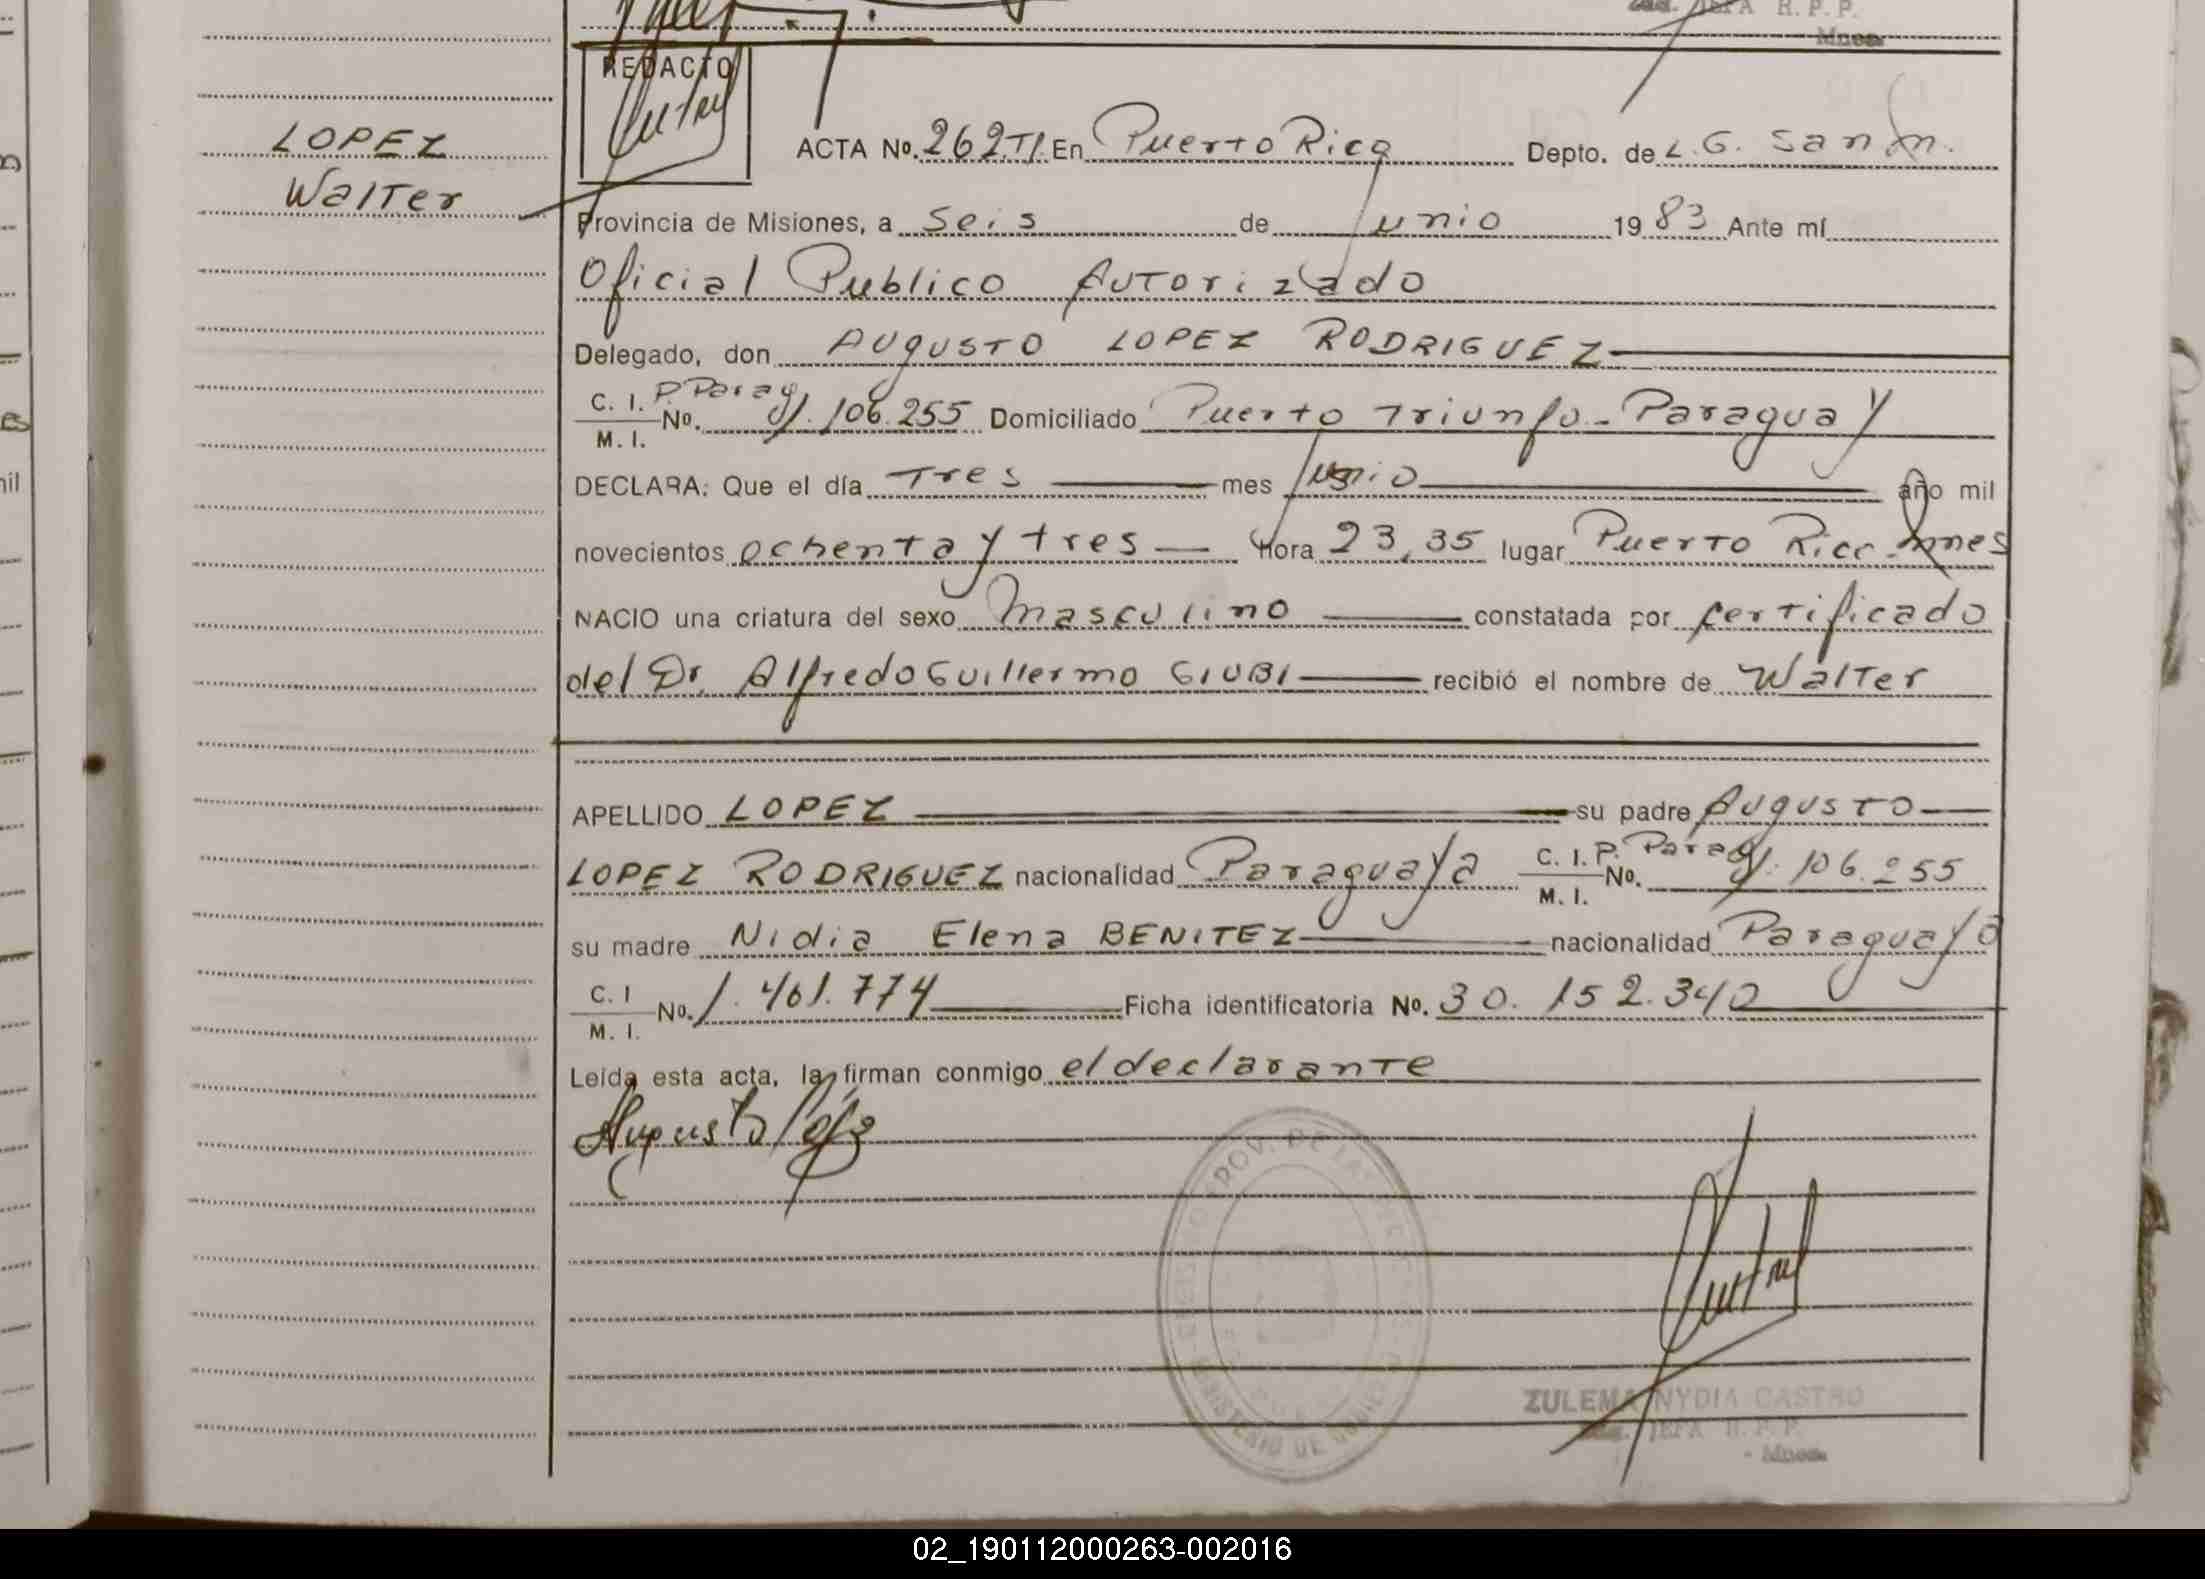 JEFA R. P. P.
Mnes.
REDACTO
LOPEZ
Walter
ACTA No. 262 TI. En Puerto Rico Depto. de L. G. San M.
Provincia de Misiones, a Seis de Junio 1983 Ante mí
Oficial Publico Autorizado
Delegado, don AUGUSTO LOPEZ RODRIGUEZ
C. I. P. Parag
M. I. No. 1.106.255 Domiciliado Puerto Triunfo - Paraguay
DECLARA: Que el día Tres mes Junio año mil
novecientos ochenta y tres Hora 23,35 lugar Puerto Rico Mnes
NACIO una criatura del sexo Masculino constatada por certificado
del Dr. Alfredo Guillermo GIUBI recibió el nombre de Walter
APELLIDO LOPEZ su padre AUGUSTO
LOPEZ RODRIGUEZ nacionalidad Paraguaya C. I. P. Parag M. I. No. 1.106.255
su madre Nidia Elena BENITEZ nacionalidad Paraguaya
C. I M. I. No. 1.461.774 Ficha identificatoria No. 30.152.340
Leída esta acta, la firman conmigo el declarante
Augusto López
PROV. DE
MINISTERIO DE GOBIERNO
ZULEMA NYDIA CASTRO
JEFA R. P. P.
- Mnes.
02_190112000263-002016